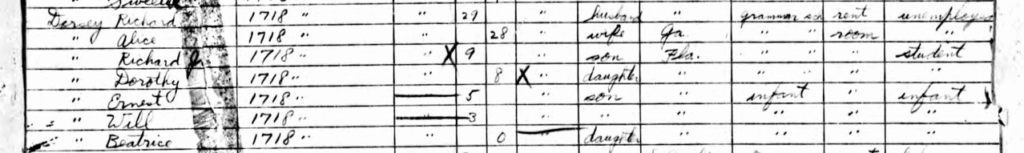 Dorsey Richard 1718 " " 29 " husband " grammar sch rent unemployed
" Alice 1718 " " 28 " wife Ga. " " room "
" Richard Jr. 1718 " " X 9 " son Fla. " " " student
" Dorothy 1718 " " 8 X " daughter " " " " "
" Ernest 1718 " 5 " son " infant " infant
" Will 1718 " " 3 " " " " " "
" Beatrice 1718 " " 0 daughter " " " "